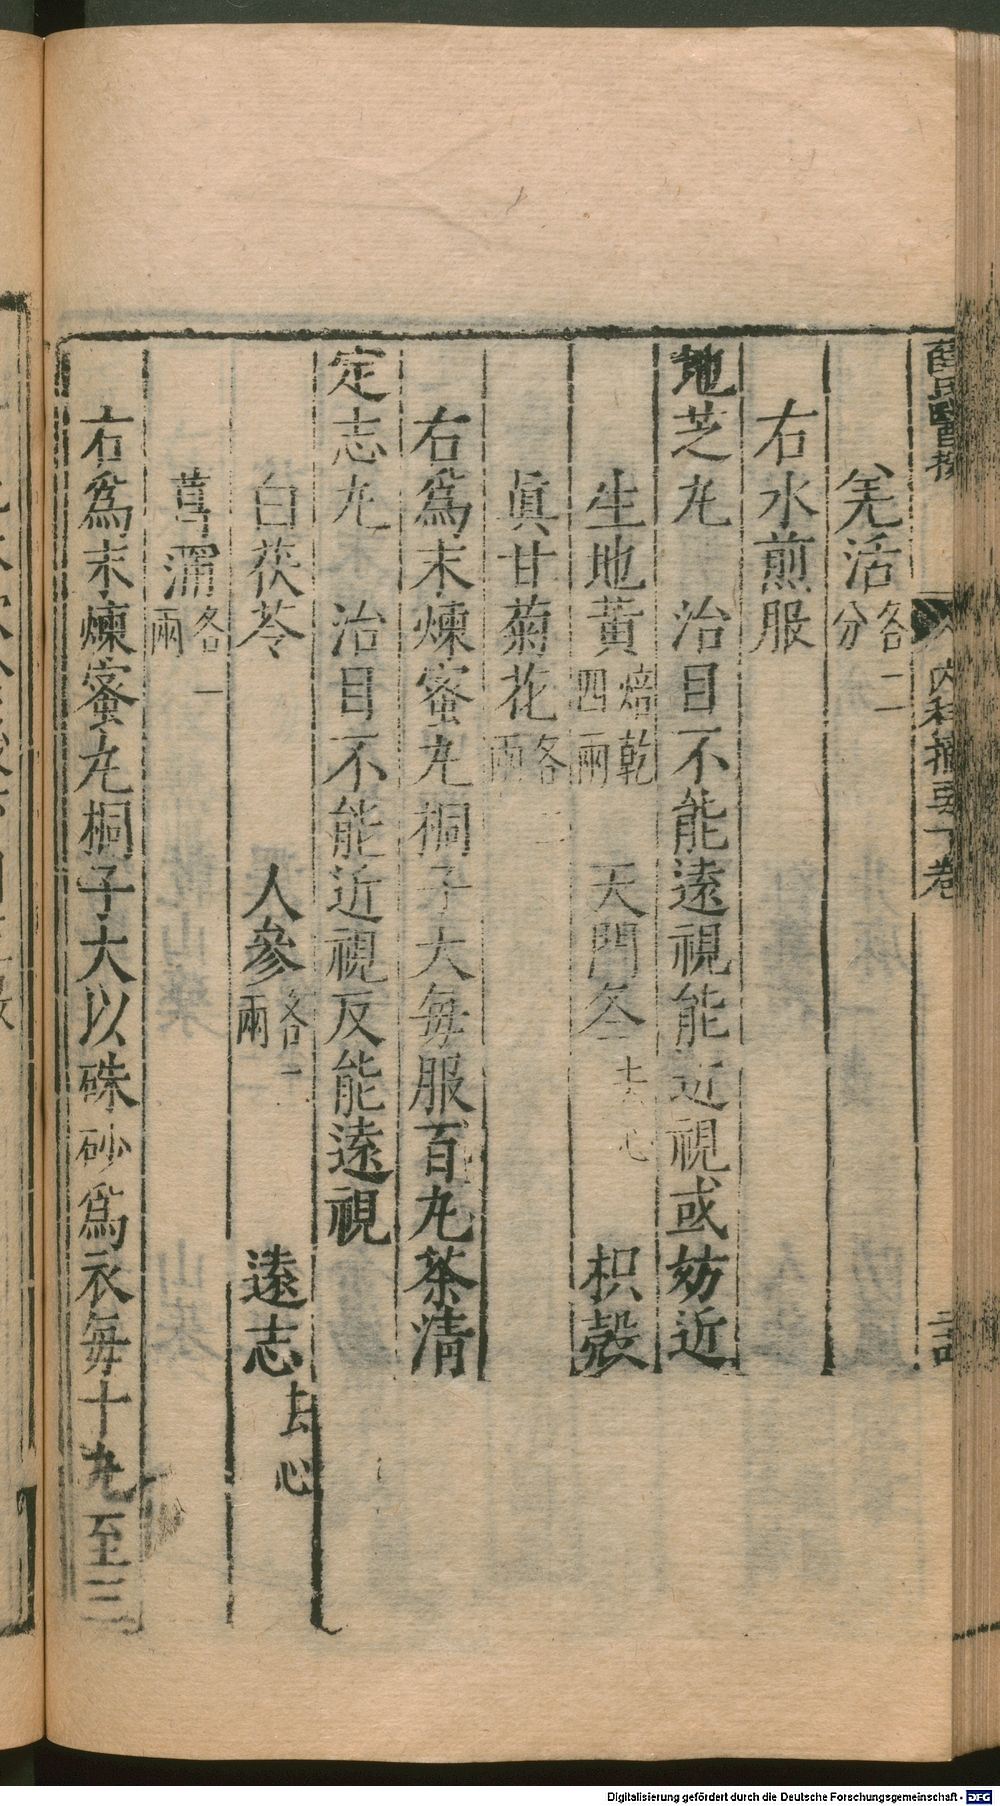 薛氏醫按
內科摘要下卷
羌活各二分
右水煎服
地芝丸　治目不能遠視能近視或妨近
生地黃焙乾四兩　天門冬去心　枳殼
眞甘菊花各二兩
右爲末煉蜜丸桐子大每服百丸茶清
定志丸　治目不能近視反能遠視
白茯苓　人參各一兩　遠志去心
菖蒲各一兩
右爲末煉蜜丸桐子大以硃砂爲衣每十丸至三
Digitalisierung gefördert durch die Deutsche Forschungsgemeinschaft - DFG